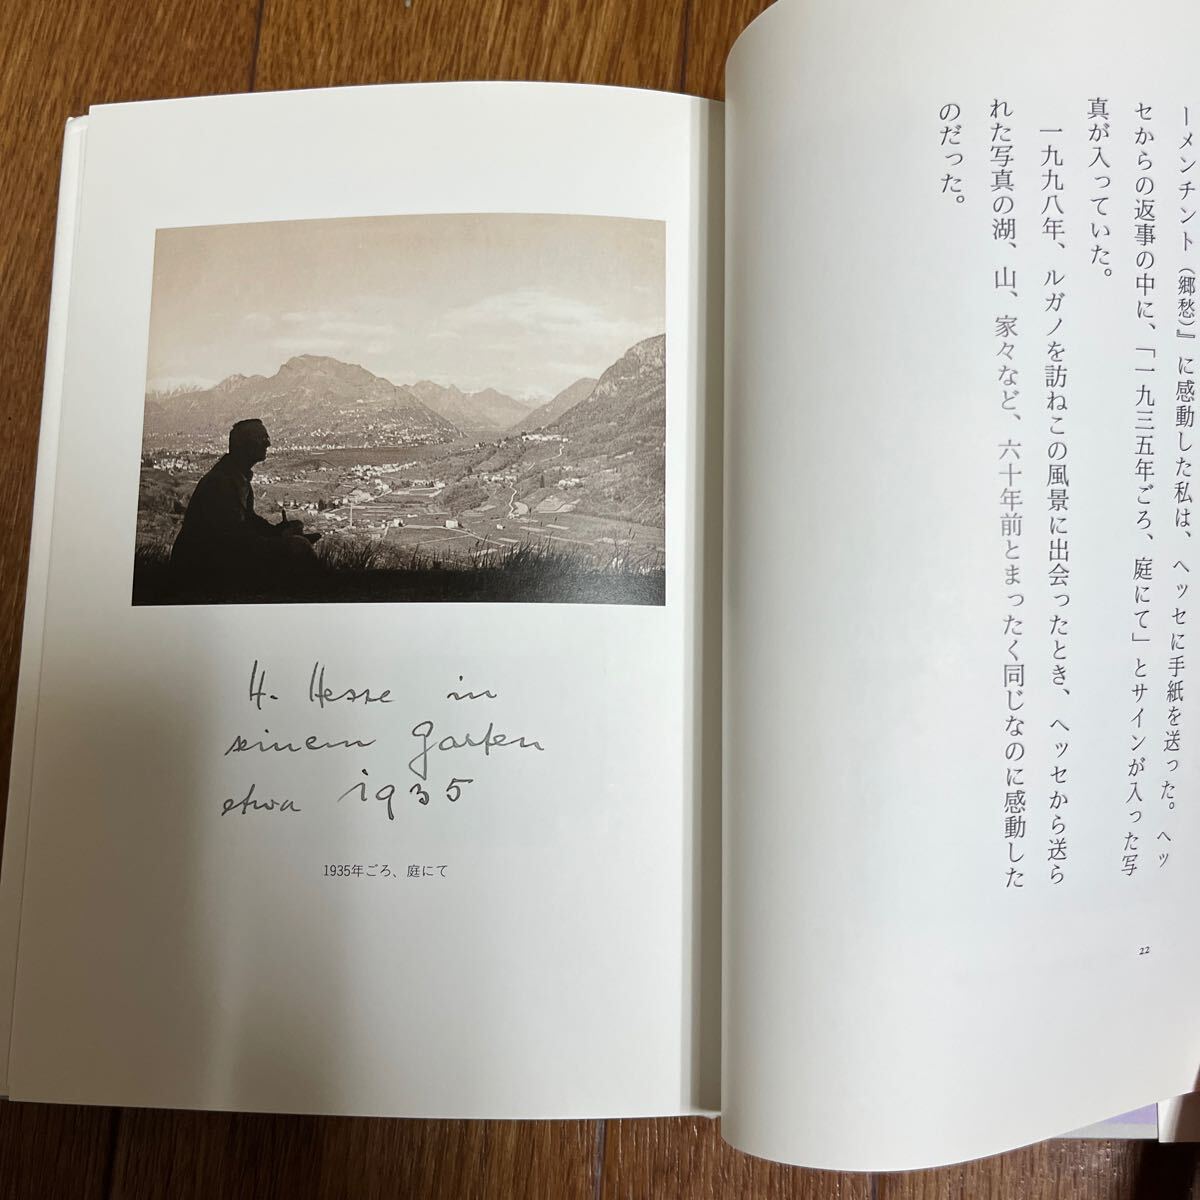 ーメンチント(郷愁)』に感動した私は、ヘッセに手紙を送った。ヘッ
セからの返事の中に、「一九三五年ごろ、庭にて」とサインが入った写
真が入っていた。
一九九八年、ルガノを訪ねこの風景に出会ったとき、ヘッセから送ら
れた写真の湖、山、家々など、六十年前とまったく同じなのに感動した
のだった。
22
H. Hesse in
seinem Garten
etwa 1935
1935年ごろ、庭にて